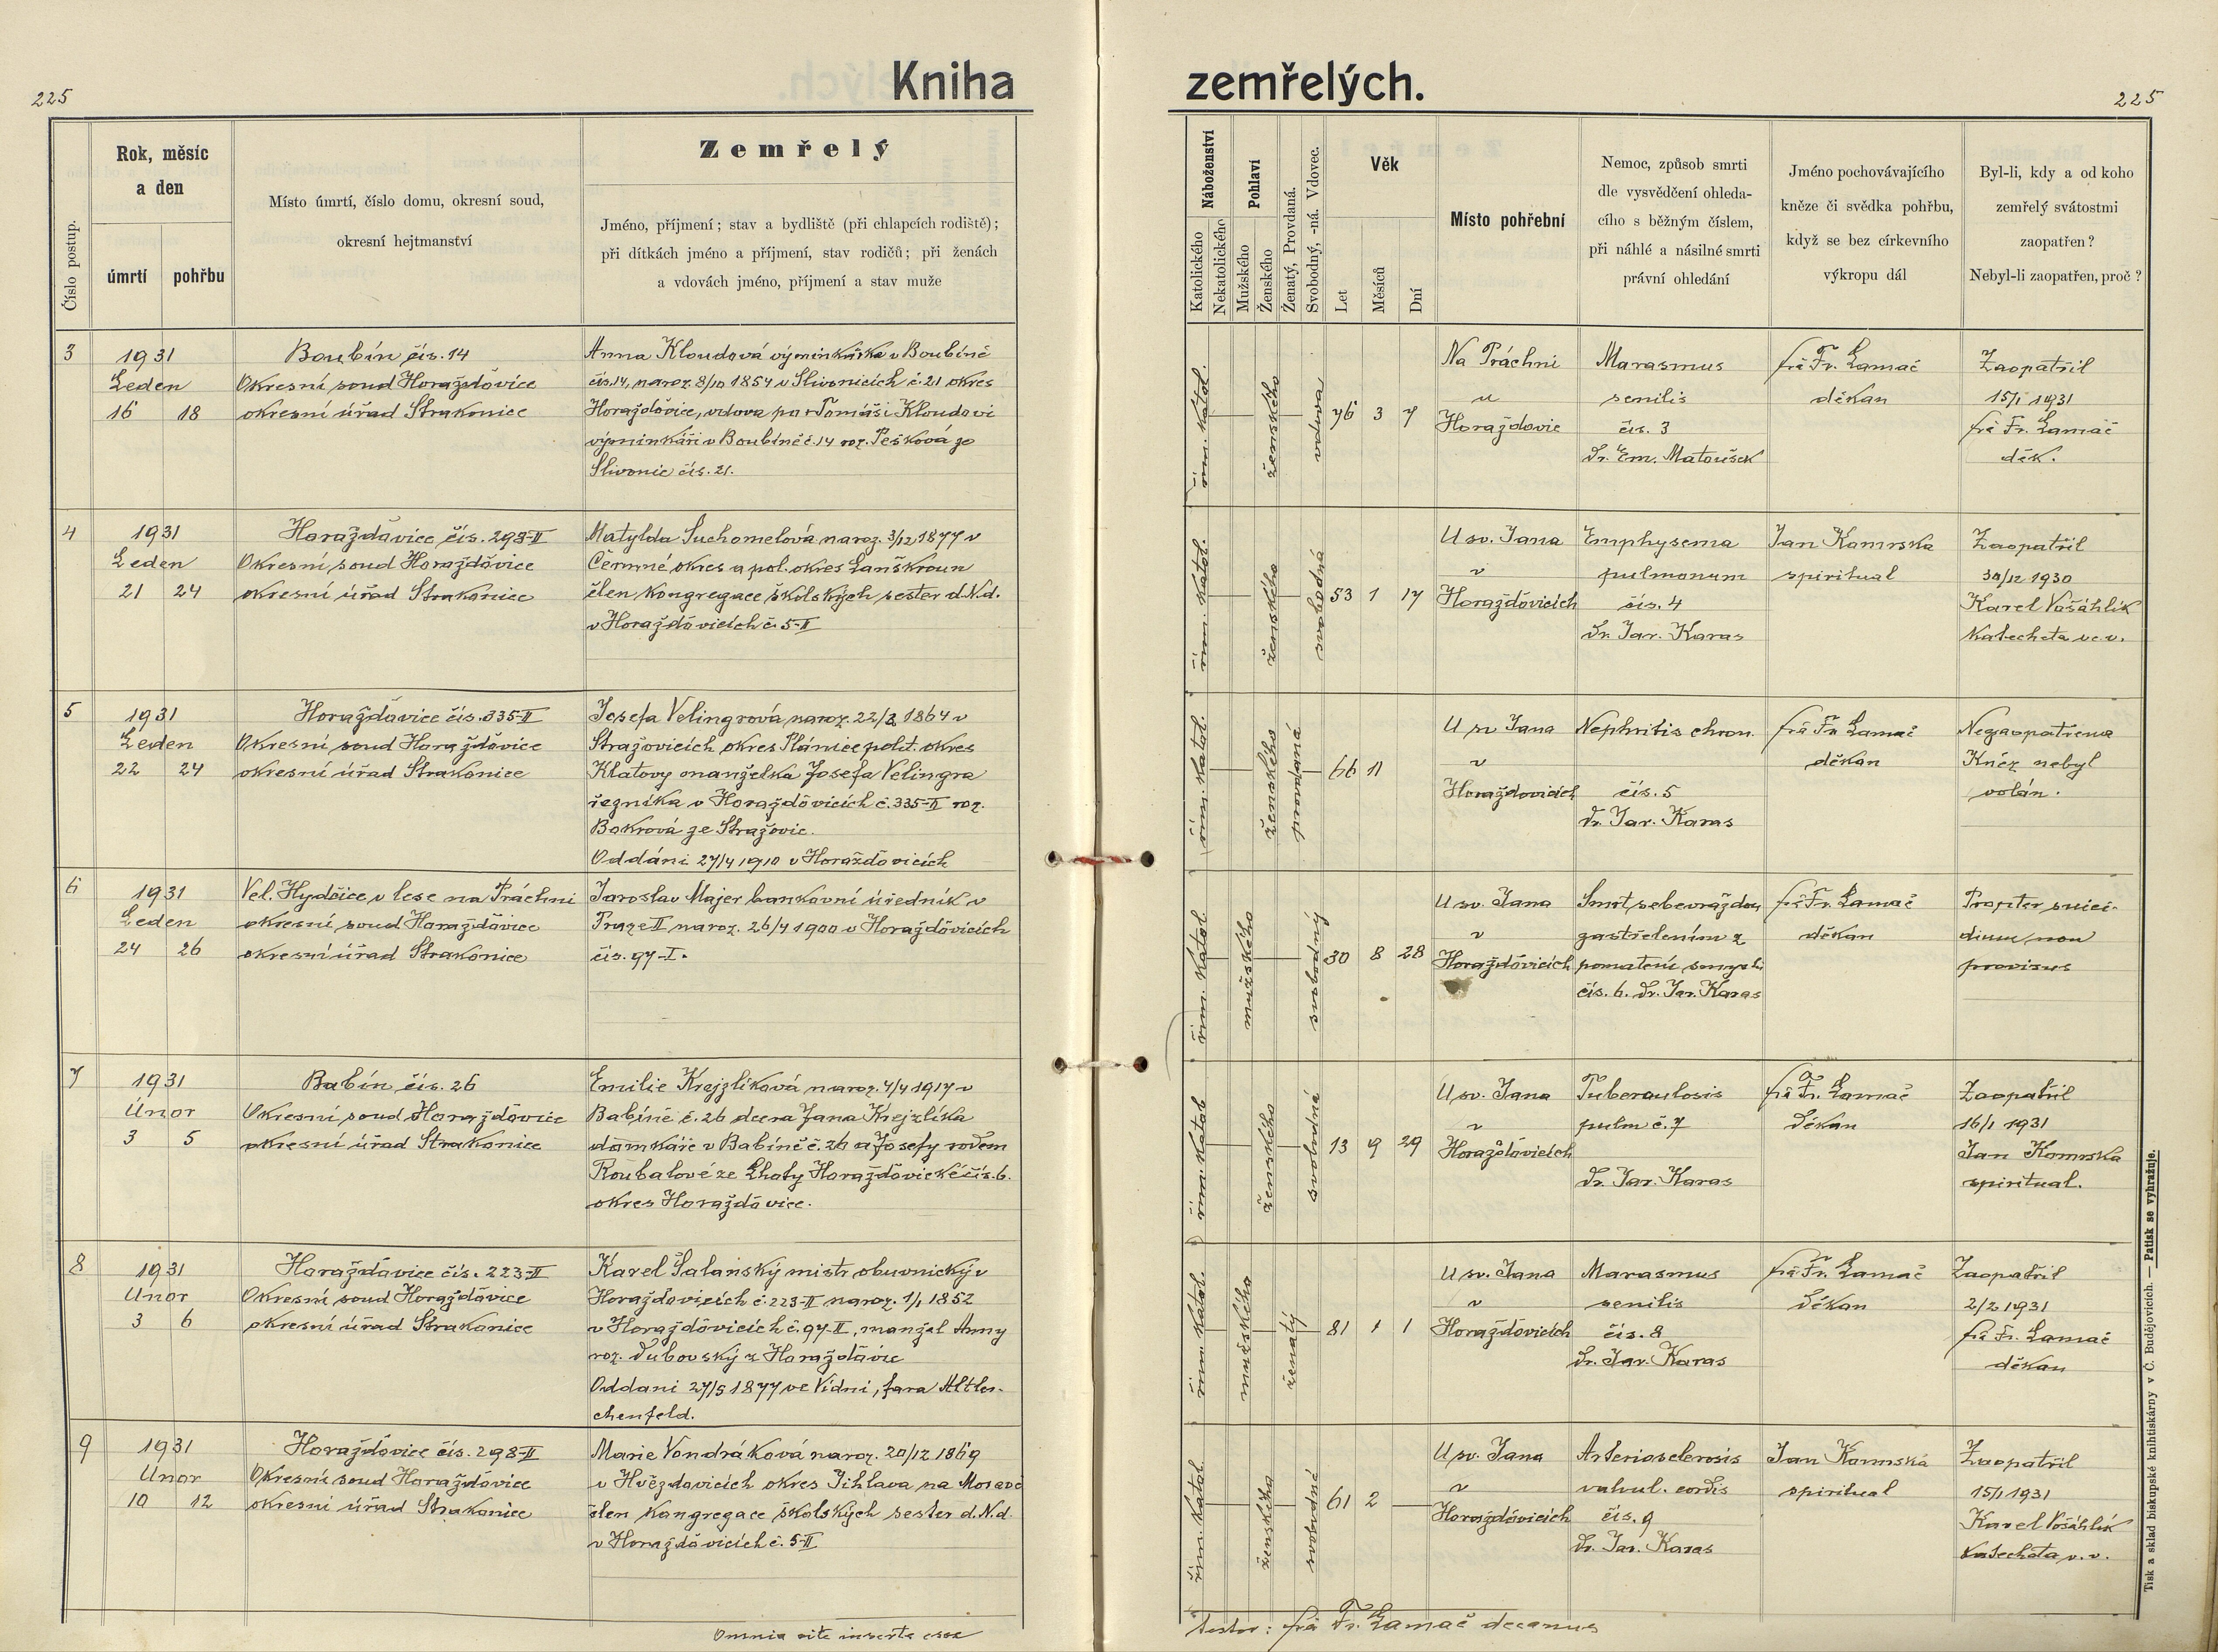 225
Kniha
zemřelých.
225
Číslo postup.
Rok, měsíc
a den
úmrtí
pohřbu
Místo úmrtí, číslo domu, okresní soud,
okresní hejtmanství
Zemřelý
Jméno, příjmení; stav a bydliště (při chlapcích rodiště);
při dítkách jméno a příjmení, stav rodičů; při ženách
a vdovách jméno, příjmení a stav muže
Náboženství
Katolického
Nekatolického
Pohlaví
Mužského
Ženského
Ženatý, Provdaná.
Svobodný, -ná. Vdovec.
Věk
Let
Měsíců
Dní
Místo pohřební
Nemoc, způsob smrti
dle vysvědčení ohleda-
cího s běžným číslem,
při náhlé a násilné smrti
právní ohledání
Jméno pochovávajícího
kněze či svědka pohřbu,
když se bez církevního
výkropu dál
Byl-li, kdy a od koho
zemřelý svátostmi
zaopatřen?
Nebyl-li zaopatřen, proč?
3
1931
Leden
16 18
Boubín čís. 14
Okresní soud Horažďovice
okresní úřad Strakonice
Anna Kloudová výminkářka v Boubíně
čís. 14, naroz. 8/10 1854 v Slivonicích č. 21 okres
Horažďovice, vdova po + Tomáši Kloudovi
výminkáři v Boubíně č. 14 roz. Pešková ze
Slivonic čís. 21.
řím. katol.
ženského
vdova
76 3 7
Na Práchni
u
Horažďovic
Marasmus
senilis
čís. 3
Dr. Em. Matoušek
frá Fr. Lamač
děkan
Zaopatřil
15/I 1931
frá Fr. Lamač
děk.
4
1931
Leden
21 24
Horažďovice čís. 298-II
Okresní soud Horažďovice
okresní úřad Strakonice
Matylda Suchomelová naroz. 3/12 1877 v
Čermné okres a pol. okres Lanškroun
člen Kongregace školských sester d. N. d.
v Horažďovicích č. 5-II
řím. katol.
ženského
svobodná
53 1 17
U sv. Jana
v
Horažďovicích
Emphysema
pulmonum
čís. 4
Dr. Jar. Karas
Jan Komrska
spiritual
Zaopatřil
30/12 1930
Karel Vošáhlík
Katecheta v. v.
5
1931
Leden
22 24
Horažďovice čís. 335-II
Okresní soud Horažďovice
okresní úřad Strakonice
Josefa Velingrová naroz. 22/2 1864 v
Stražovicích okres Plánice polit. okres
Klatovy manželka Josefa Velingra
řezníka v Horažďovicích č. 335-II roz.
Bokrová ze Stražovic.
Oddáni 27/4 1910 v Horažďovicích
řím. katol.
ženského
provdaná
66 11
U sv Jana
v
Horažďovicích
Nephritis chron.
čís. 5
Dr. Jar. Karas
frá Fr. Lamač
děkan
Nezaopatřena
Kněz nebyl
volán.
6
1931
Leden
24 26
Vel. Hydčice v lese na Práchni
okresní soud Horažďovice
okresní úřad Strakonice
Jaroslav Majer bankovní úředník v
Praze II naroz. 26/4 1900 v Horažďovicích
čís. 97-I.
řím. katol
mužského
svobodný
30 8 28
U sv. Jana
v
Horažďovicích
Smrt sebevraždou
zastřelením z
pomatení smyslů
čís. 6. Dr. Jar. Karas
frá Fr. Lamač
děkan
Propter suici-
dium non
provisus
7
1931
Únor
3 5
Babín čís. 26
Okresní soud Horažďovice
okresní úřad Strakonice
Emilie Krejzlíková naroz. 4/4 1917 v
Babíně č. 26 dcera Jana Krejzlíka
domkáře v Babíně č. 26 a Josefy rodem
Roubalové ze Lhoty Horažďovické čís. 6.
okres Horažďovice.
řím. katol
ženského
svobodná
13 9 29
U sv. Jana
v
Horažďovicích
Tuberculosis
pulm č. 7
Dr. Jar. Karas
frá Fr. Lamač
děkan
Zaopatřil
16/1 1931
Jan Komrska
spiritual.
8
1931
Únor
3 6
Horažďovice čís. 223-II
Okresní soud Horažďovice
okresní úřad Strakonice
Karel Šalanský mistr obuvnický v
Horažďovicích č. 223-II naroz. 1/1 1852
v Horažďovicích č. 97-II, manžel Anny
roz. Dubovský z Horažďovic
Oddani 27/5 1877 ve Vídni, fara Altler-
chenfeld.
řím. katol.
mužského
ženatý
81 1 1
U sv. Jana
v
Horažďovicích
Marasmus
senilis
čís. 8
Dr. Jar. Karas
frá Fr. Lamač
děkan
Zaopatřil
2/2 1931
frá Fr. Lamač
děkan
9
1931
Unor
10 12
Horažďovice čís. 298-II
Okresní soud Horažďovice
okresní úřad Strakonice
Marie Vondráková naroz. 20/12 1869
v Hvězdovicích okres Jihlava na Moravě
člen Kongregace školských sester d. N. d.
v Horažďovicích č. 5-II
řím. katol.
ženského
svobodná
61 2
U sv. Jana
v
Horažďovicích
Arteriosclerosis
valvul. cordis
čís. 9
Dr. Jar. Karas
Jan Komrska
spiritual
Zaopatřil
15/1 1931
Karel Vošáhlík
Katecheta v. v.
Omnia rite inserta esse
testor: frá Fr. Lamač decanus
Tisk a sklad biskupské knihtiskárny v Č. Budějovicích. — Patisk se vyhražuje.